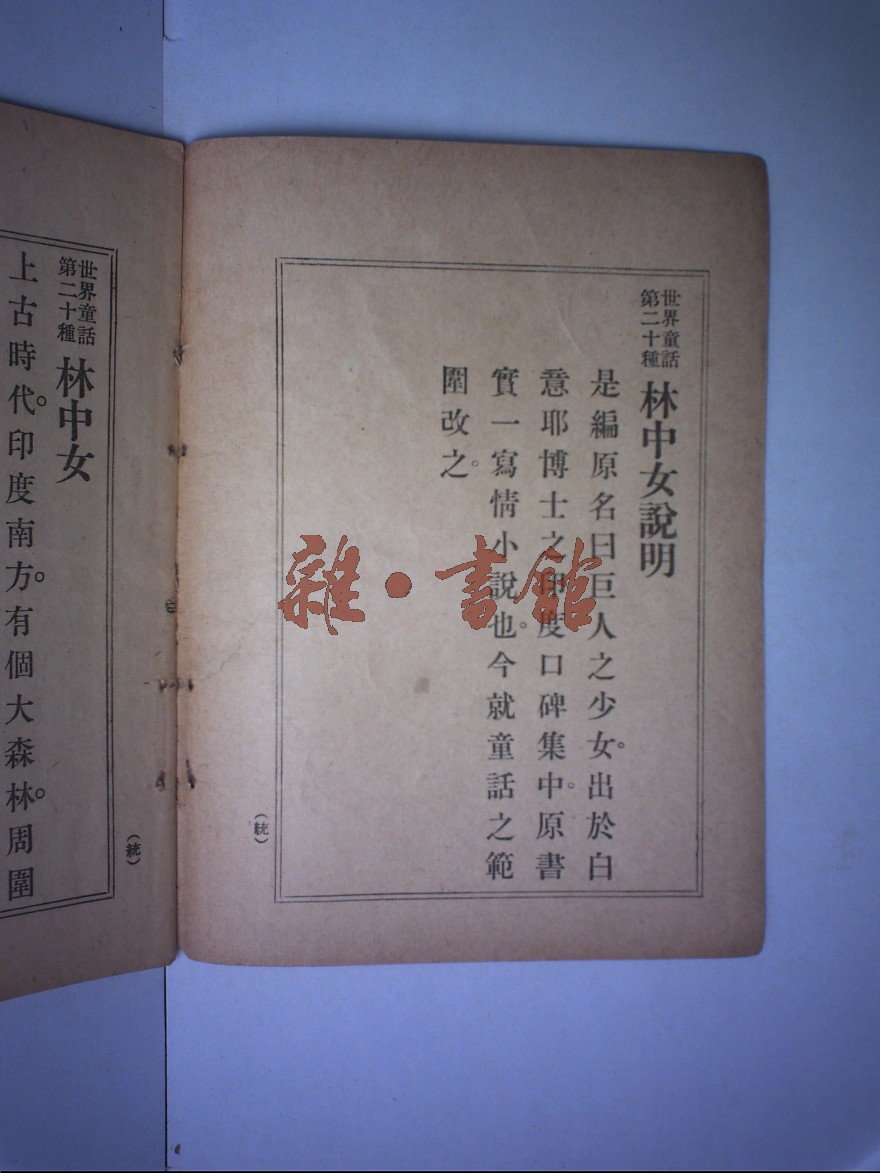 世界童話
第二十種
林中女說明
是編原名曰巨人之少女。出於白
意耶博士之印度口碑集中。原書
實一寫情小說也。今就童話之範
圍改之。
（統）
雜・書館
世界童話
第二十種
林中女
上古時代。印度南方。有個大森林。周圍
（統）